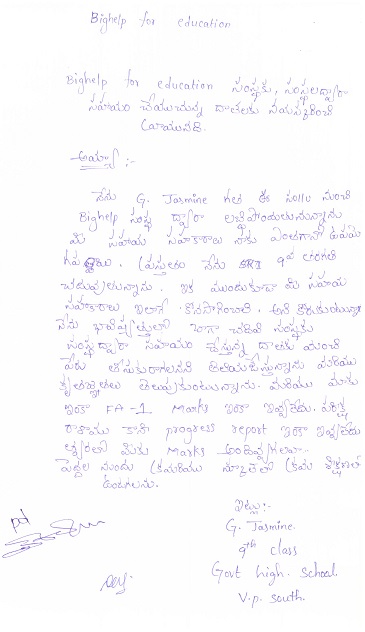 Bighelp for education
Bighelp for education సంస్థకు, సంస్థలద్వారా
సహాయం చేయుచున్న దాతలకు నమస్కరించి
వ్రాయునది.
అయ్యా :-
నేను G. Jasmine గత ఈ నుంచి
Bighelp సంస్థ ద్వారా లబ్ధిపొందుతున్నాను
మీ సహాయ సహకారాలు నాకు ఎంతగానో
ప్రస్తుతం నేను 9వ తరగతి
చదువుతున్నాను. ఇక ముందుకూడా మీ సహాయ
సహకారాలు ఇలాగే కొనసాగించాలి అని కోరుకుంటున్నా
నేను భవిష్యత్తులో బాగా చదివి సంస్థకు
సంస్థద్వారా సహాయం చేస్తున్న దాతలకు మంచి
పేరు తీసుకురాగలనని తెలియజేస్తున్నాను మరియు
కృతజ్ఞతలు తెలుపుకుంటున్నాను. మరియు మాకు
ఇంకా FA-1 Marks ఇంకా ఇవ్వలేదు.
కానీ progress report ఇంకా ఇవ్వలేదు
త్వరలో మీకు Marks
పెద్దల ముందు
ఉండగలను.
ఇట్లు:-
G. Jasmine.
9th class
Govt high. School.
V.p. South.